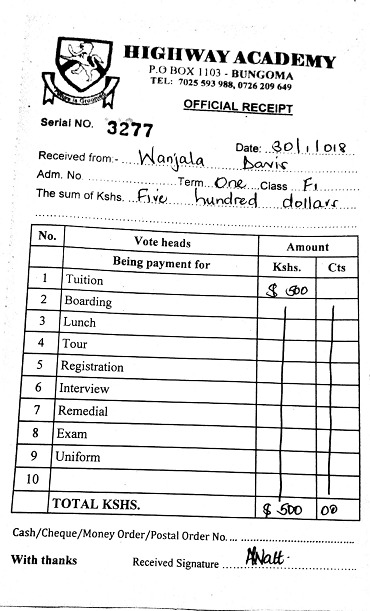 HIGHWAY ACADEMY
P.O BOX 1103 - BUNGOMA
TEL: 7025 593 988, 0726 209 649
OFFICIAL RECEIPT
Serial NO. 3277
Date: 30/1/018
Received from:- Wanjala Davis
Adm. No. Term One Class F1
The sum of Kshs. Five hundred dollars
No. Vote heads Amount
Being payment for Kshs. Cts
1 Tuition $ 500
2 Boarding
3 Lunch
4 Tour
5 Registration
6 Interview
7 Remedial
8 Exam
9 Uniform
10
TOTAL KSHS. $ 500 00
Cash/Cheque/Money Order/Postal Order No.
With thanks Received Signature